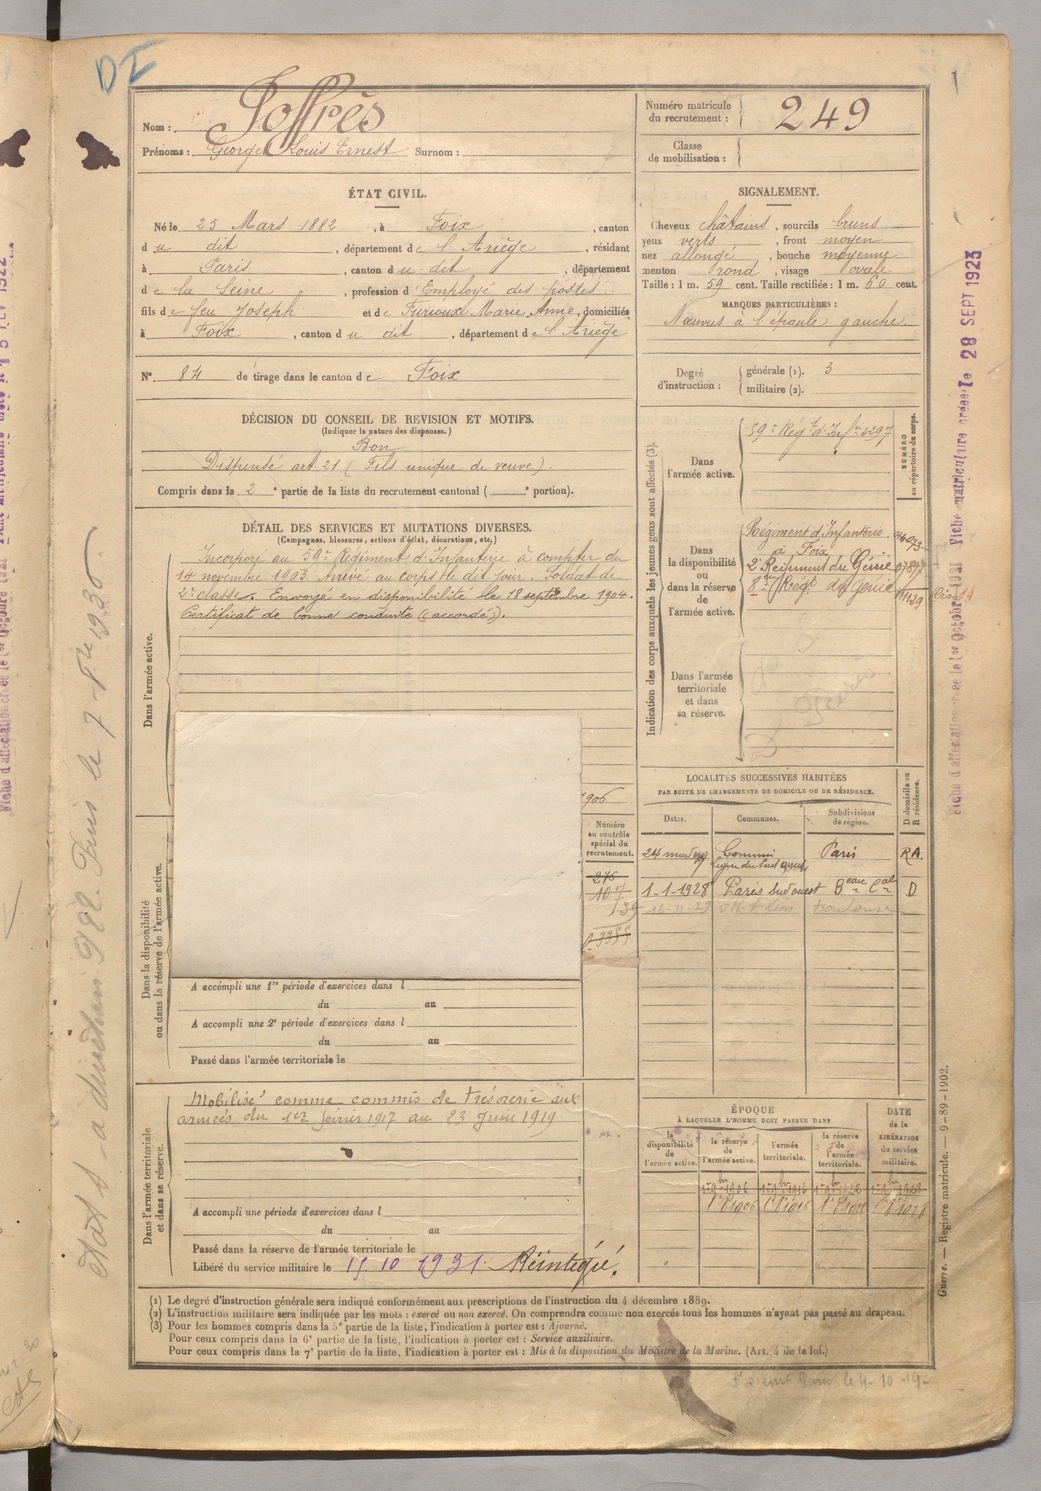 DI
1
Nom : Joffrès
Prénoms : George Louis Ernest Surnom :
Numéro matricule du recrutement : 249
Classe de mobilisation :
ÉTAT CIVIL.
Né le 25 Mars 1882, à Foix, canton
du dit, département de l'Ariège, résidant
à Paris, canton du dit, département
de la Seine, profession d'Employé des postes
fils de feu Joseph et de Furioux Marie Anne, domiciliés
à Foix, canton du dit, département de l'Ariège
N° 84 de tirage dans le canton de Foix
SIGNALEMENT.
Cheveux châtains, sourcils bruns
yeux verts, front moyen
nez allongé, bouche moyenne
menton rond, visage ovale
Taille : 1 m. 59 cent. Taille rectifiée : 1 m. 60 cent.
MARQUES PARTICULIÈRES :
Nœuvus à l'épaule gauche.
Degré d'instruction : générale (1). 3
militaire (2).
DÉCISION DU CONSEIL DE REVISION ET MOTIFS.
(Indiquer la nature des dispenses.)
Bon
Dispensé art. 21 (Fils unique de veuve).
Compris dans la 2e partie de la liste du recrutement cantonal ( e portion).
DÉTAIL DES SERVICES ET MUTATIONS DIVERSES.
(Campagnes, blessures, actions d'éclat, décorations, etc.)
Dans l'armée active.
Incorporé au 59e Régiment d'Infanterie à compter du
14 novembre 1903. Arrivé au corps le dit jour. Soldat de
2e classe. Envoyé en disponibilité le 18 septembre 1904.
Certificat de bonne conduite (accordé).
1906
Indication des corps auxquels les jeunes gens sont affectés (3).
NUMÉRO au répertoire du corps.
Dans l'armée active.
59e Régt d'Infie 5297
Dans la disponibilité ou dans la réserve de l'armée active.
Régiment d'Infanterie
à Foix
2e Régiment du Génie
8e Régt du Génie
Dans l'armée territoriale et dans sa réserve.
LOCALITÉS SUCCESSIVES HABITÉES
PAR SUITE DE CHANGEMENTS DE DOMICILE OU DE RÉSIDENCE.
Dates. Communes. Subdivisions de région. D domicile ou R résidence.
Paris RA.
1-1-1928 Paris sud ouest D
Toulouse
Numéro au contrôle spécial du recrutement.
276
107
Dans la disponibilité ou dans la réserve de l'armée active.
A accompli une 1re période d'exercices dans l
du au
A accompli une 2e période d'exercices dans l
du au
Passé dans l'armée territoriale le
Dans l'armée territoriale et dans sa réserve.
Mobilisé comme commis de trésorerie aux
armées du 1er février 1917 au 23 Juin 1919
A accompli une période d'exercices dans l
du au
Passé dans la réserve de l'armée territoriale le
Libéré du service militaire le 15 10 1931. Réintégré.
ÉPOQUE
À LAQUELLE L'HOMME DOIT PASSER DANS
DATE de la LIBÉRATION du service militaire.
la disponibilité de l'armée active. la réserve de l'armée active. l'armée territoriale. la réserve de l'armée territoriale.
(1) Le degré d'instruction générale sera indiqué conformément aux prescriptions de l'instruction du 4 décembre 1889.
(2) L'instruction militaire sera indiquée par les mots : exercé ou non exercé. On comprendra comme non exercés tous les hommes n'ayant pas passé au drapeau.
(3) Pour les hommes compris dans la 5e partie de la liste, l'indication à porter est : Ajourné.
Pour ceux compris dans la 6e partie de la liste, l'indication à porter est : Service auxiliaire.
Pour ceux compris dans la 7e partie de la liste, l'indication à porter est : Mis à la disposition du Ministre de la Marine. (Art. 4 de la loi.)
Guerre. — Registre matricule. — 9-89-1902.
Fiche matriculaire créée le 28 SEPT 1923
Fiche d'affectation créée le 1er Octobre 1921